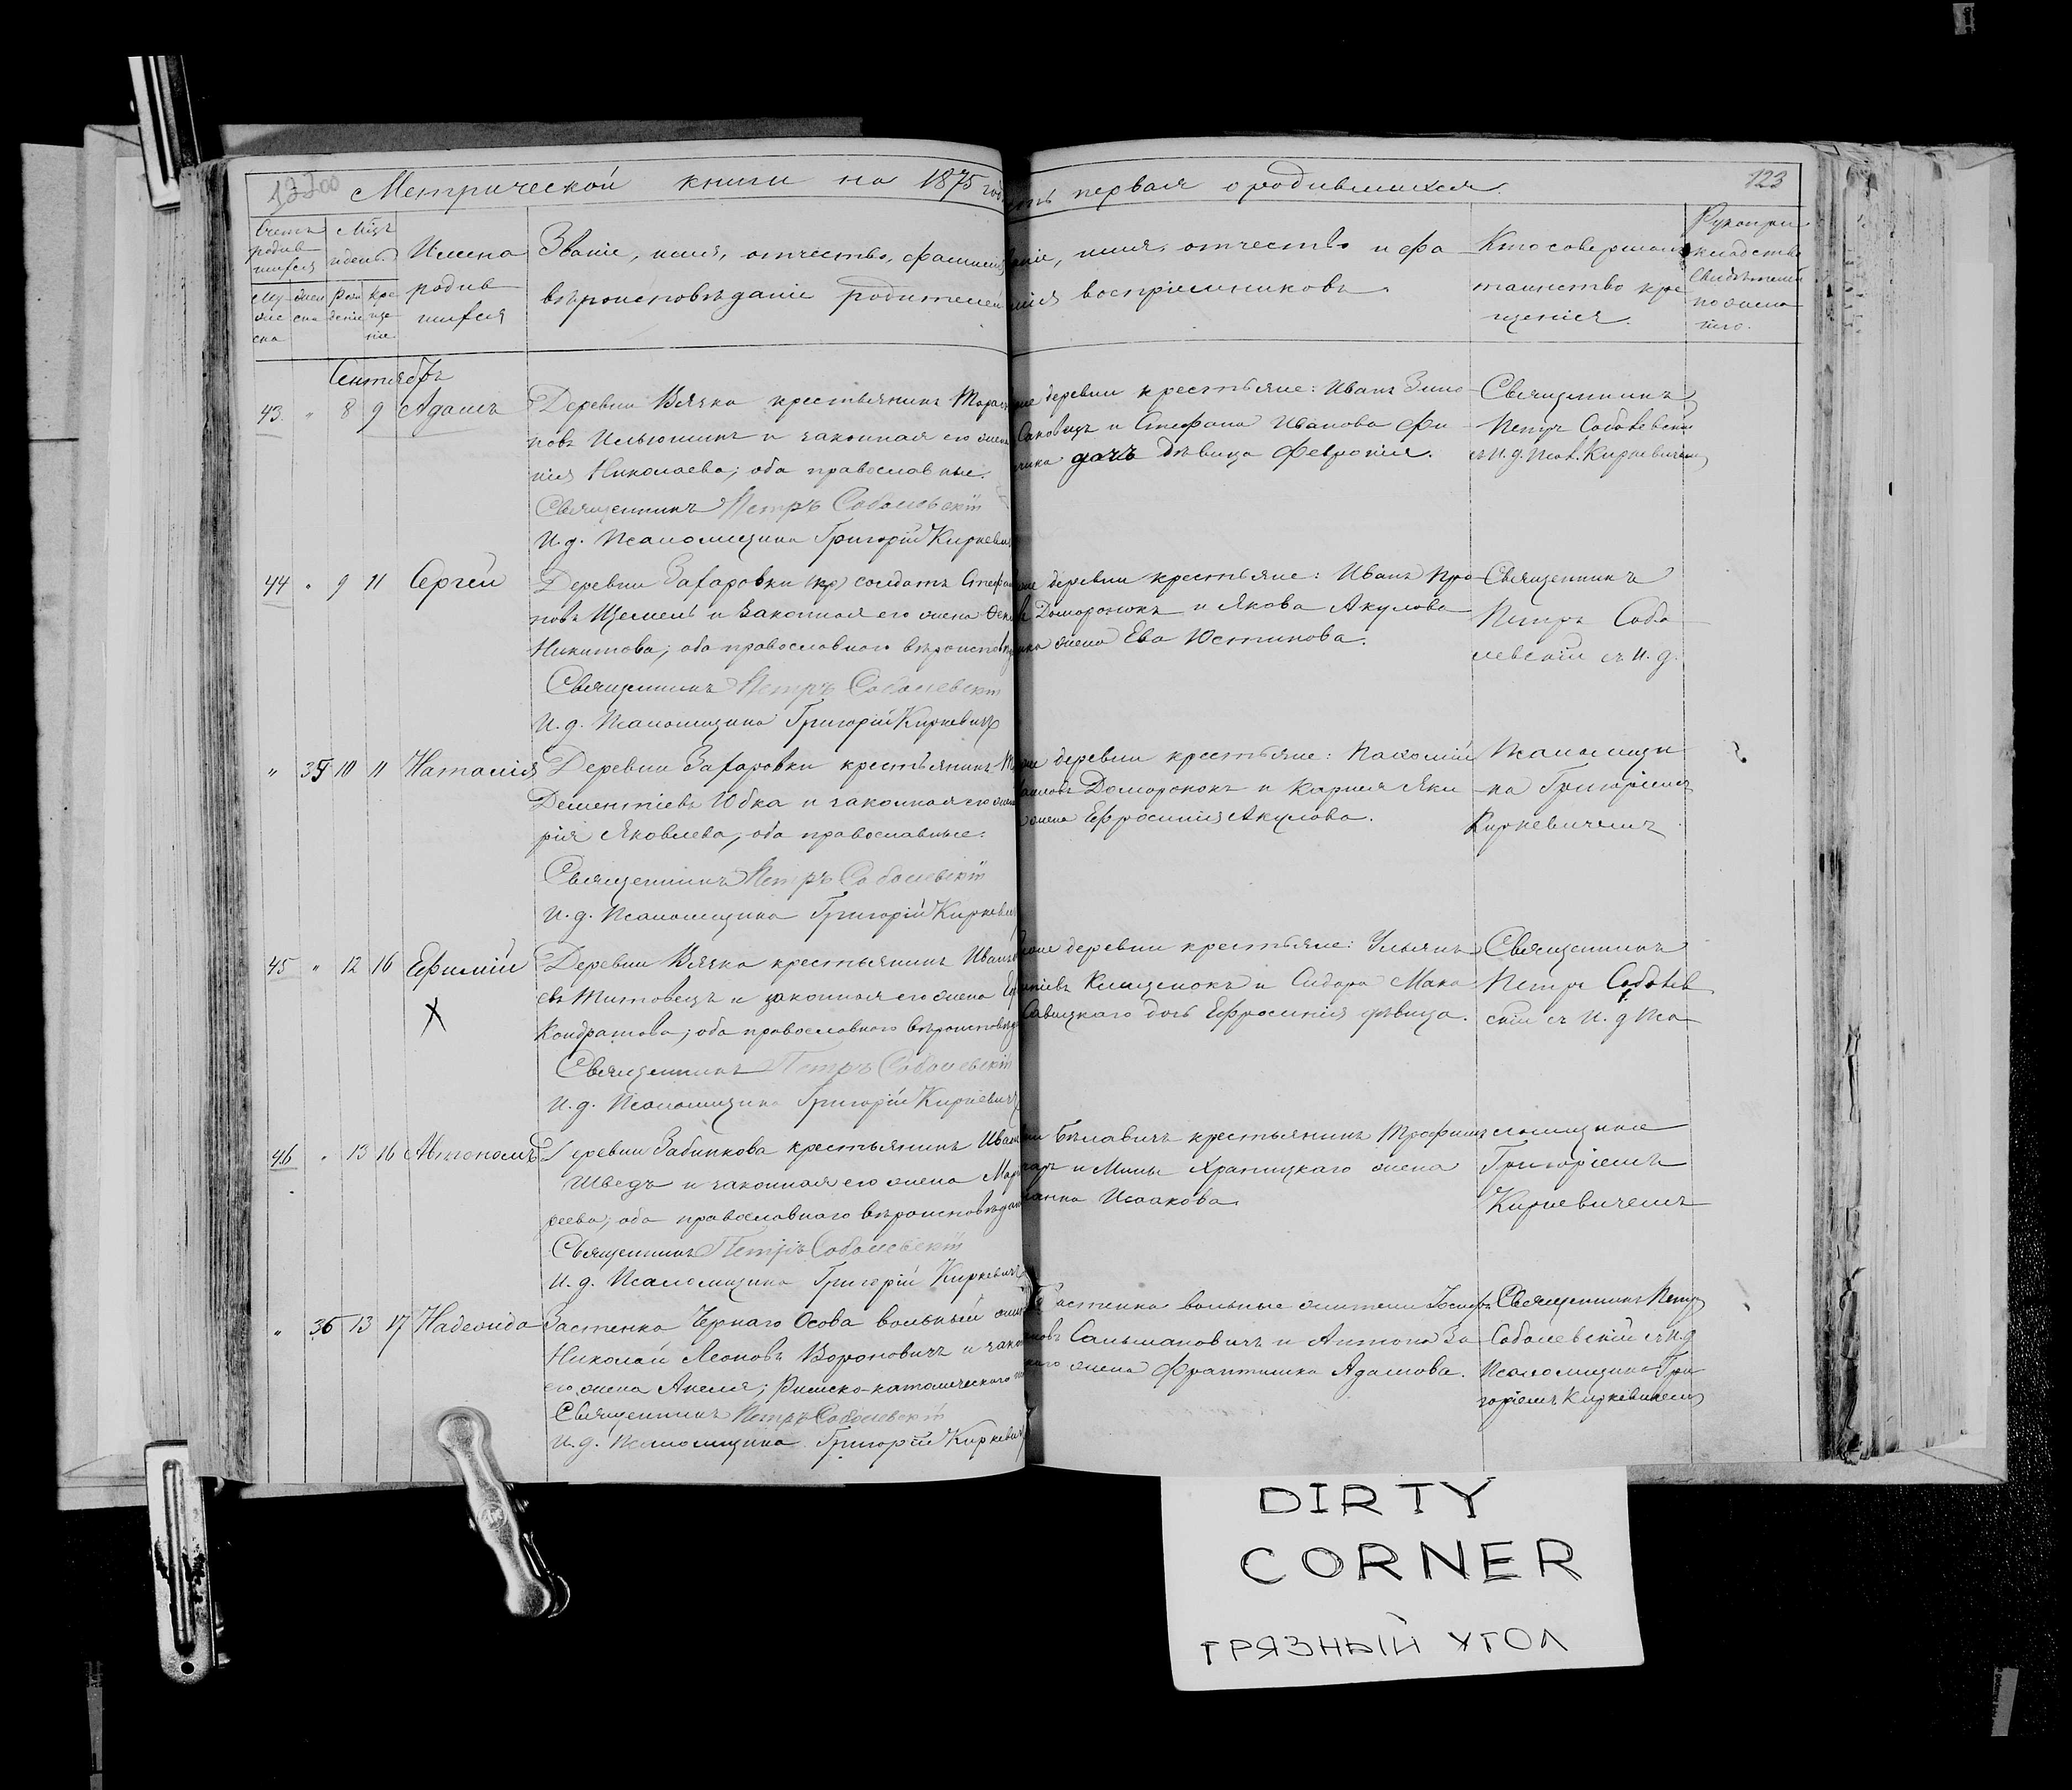 Метрической книги на 1875 год
первая о родившихся.
123
Счетъ родив шихся
Мѣсъ и день
Имена родив шихся
Званіе, имя, отчество, фамилия
вѣроисповѣданіе родителей
имя, отчество и фа
мія воспріемниковъ.
Кто совершалъ
таинство кре
щенія.
Рукопри
кладство
свидѣтелей
по жела
нію.
Сентябрь
43 " 8 9 Адамъ
Деревни Вячка крестьянинъ Тарас
повъ Ильюшинъ и законная его жена
нія Николаева; оба православные.
Священникъ Петръ Соболевскій
И. д. Псаломщика Григорій Киркевич
же деревни крестьяне: Иванъ Зино
Саковичъ и Стефана Иванова Фи
дочь дѣвица Феврония.
Священникъ
Петръ Соболевскій
съ И. д. Псал. Киркевичемъ
44 " 9 11 Сергей
Деревни Захаровки солдатъ Стефан
новъ Щемель и законная его жена
Никитова; оба православнаго вѣроиспов
Священникъ Петръ Соболевскій
И. д. Псаломщика Григорій Киркевичъ
же деревни крестьяне: Иванъ Про
Доморонокъ и Якова Акулова
жена Ева Юстинова.
Священникъ
Петръ Собо
левскій съ И. д.
" 35 10 11 Наталія
Деревни Захаровки крестьянинъ
Дементіевъ Юбка и законная его жена
рія Яковлева, оба православные.
Священникъ Петръ Соболевскій
И. д. Псаломщика Григорій Киркевич
же деревни крестьяне: Пахомій
Доморонокъ и Карпа Яки
жена Ефросинія Акулова.
Псаломщи
ка Григоріемъ
Киркевичемъ
45 " 12 16 Ефимій
X
Деревни Вячка крестьянинъ Иванъ
евъ Титовецъ и законная его жена
Кондратова; оба православнаго вѣроисповѣд
Священникъ Петръ Соболевскій
И. д. Псаломщика Григорій Киркевичъ
деревни крестьяне: Ульянъ
Клищенокъ и Сидора Мака
Савицкаго дочь Ефросинія дѣвица.
Священникъ
Петръ Соболев
скій съ И. д. Пса
46 " 13 16 Автономъ
Деревни Забинкова крестьянинъ Иван
Шведъ и законная его жена Мар
сеева; оба православнаго вѣроисповѣдан
Священникъ Петръ Соболевскій
И. д. Псаломщика Григорій Киркевичъ
Бѣлавичъ крестьянинъ Трофимъ
и Мины Храпицкаго жена
Исаакова
ломщикомъ
Григоріемъ
Киркевичемъ
" 36 13 17 Надежда
Застенка Чернаго Осова вольный жит
Николай Леоновъ Вороновичъ и зако
его жена Анеля; Римско-католического
Священникъ Петръ Соболевскій
И. д. Псаломщика Григорій Киркевич
Застенка вольные жители: Іосифъ
Сальмановичъ и Антона За
жена Франтишка Адамова.
Священникъ Петръ
Соболевскій съ И. д.
Псаломщика Гри
горіемъ Киркевичемъ
DIRTY
CORNER
ГРЯЗНЫЙ УГОЛ